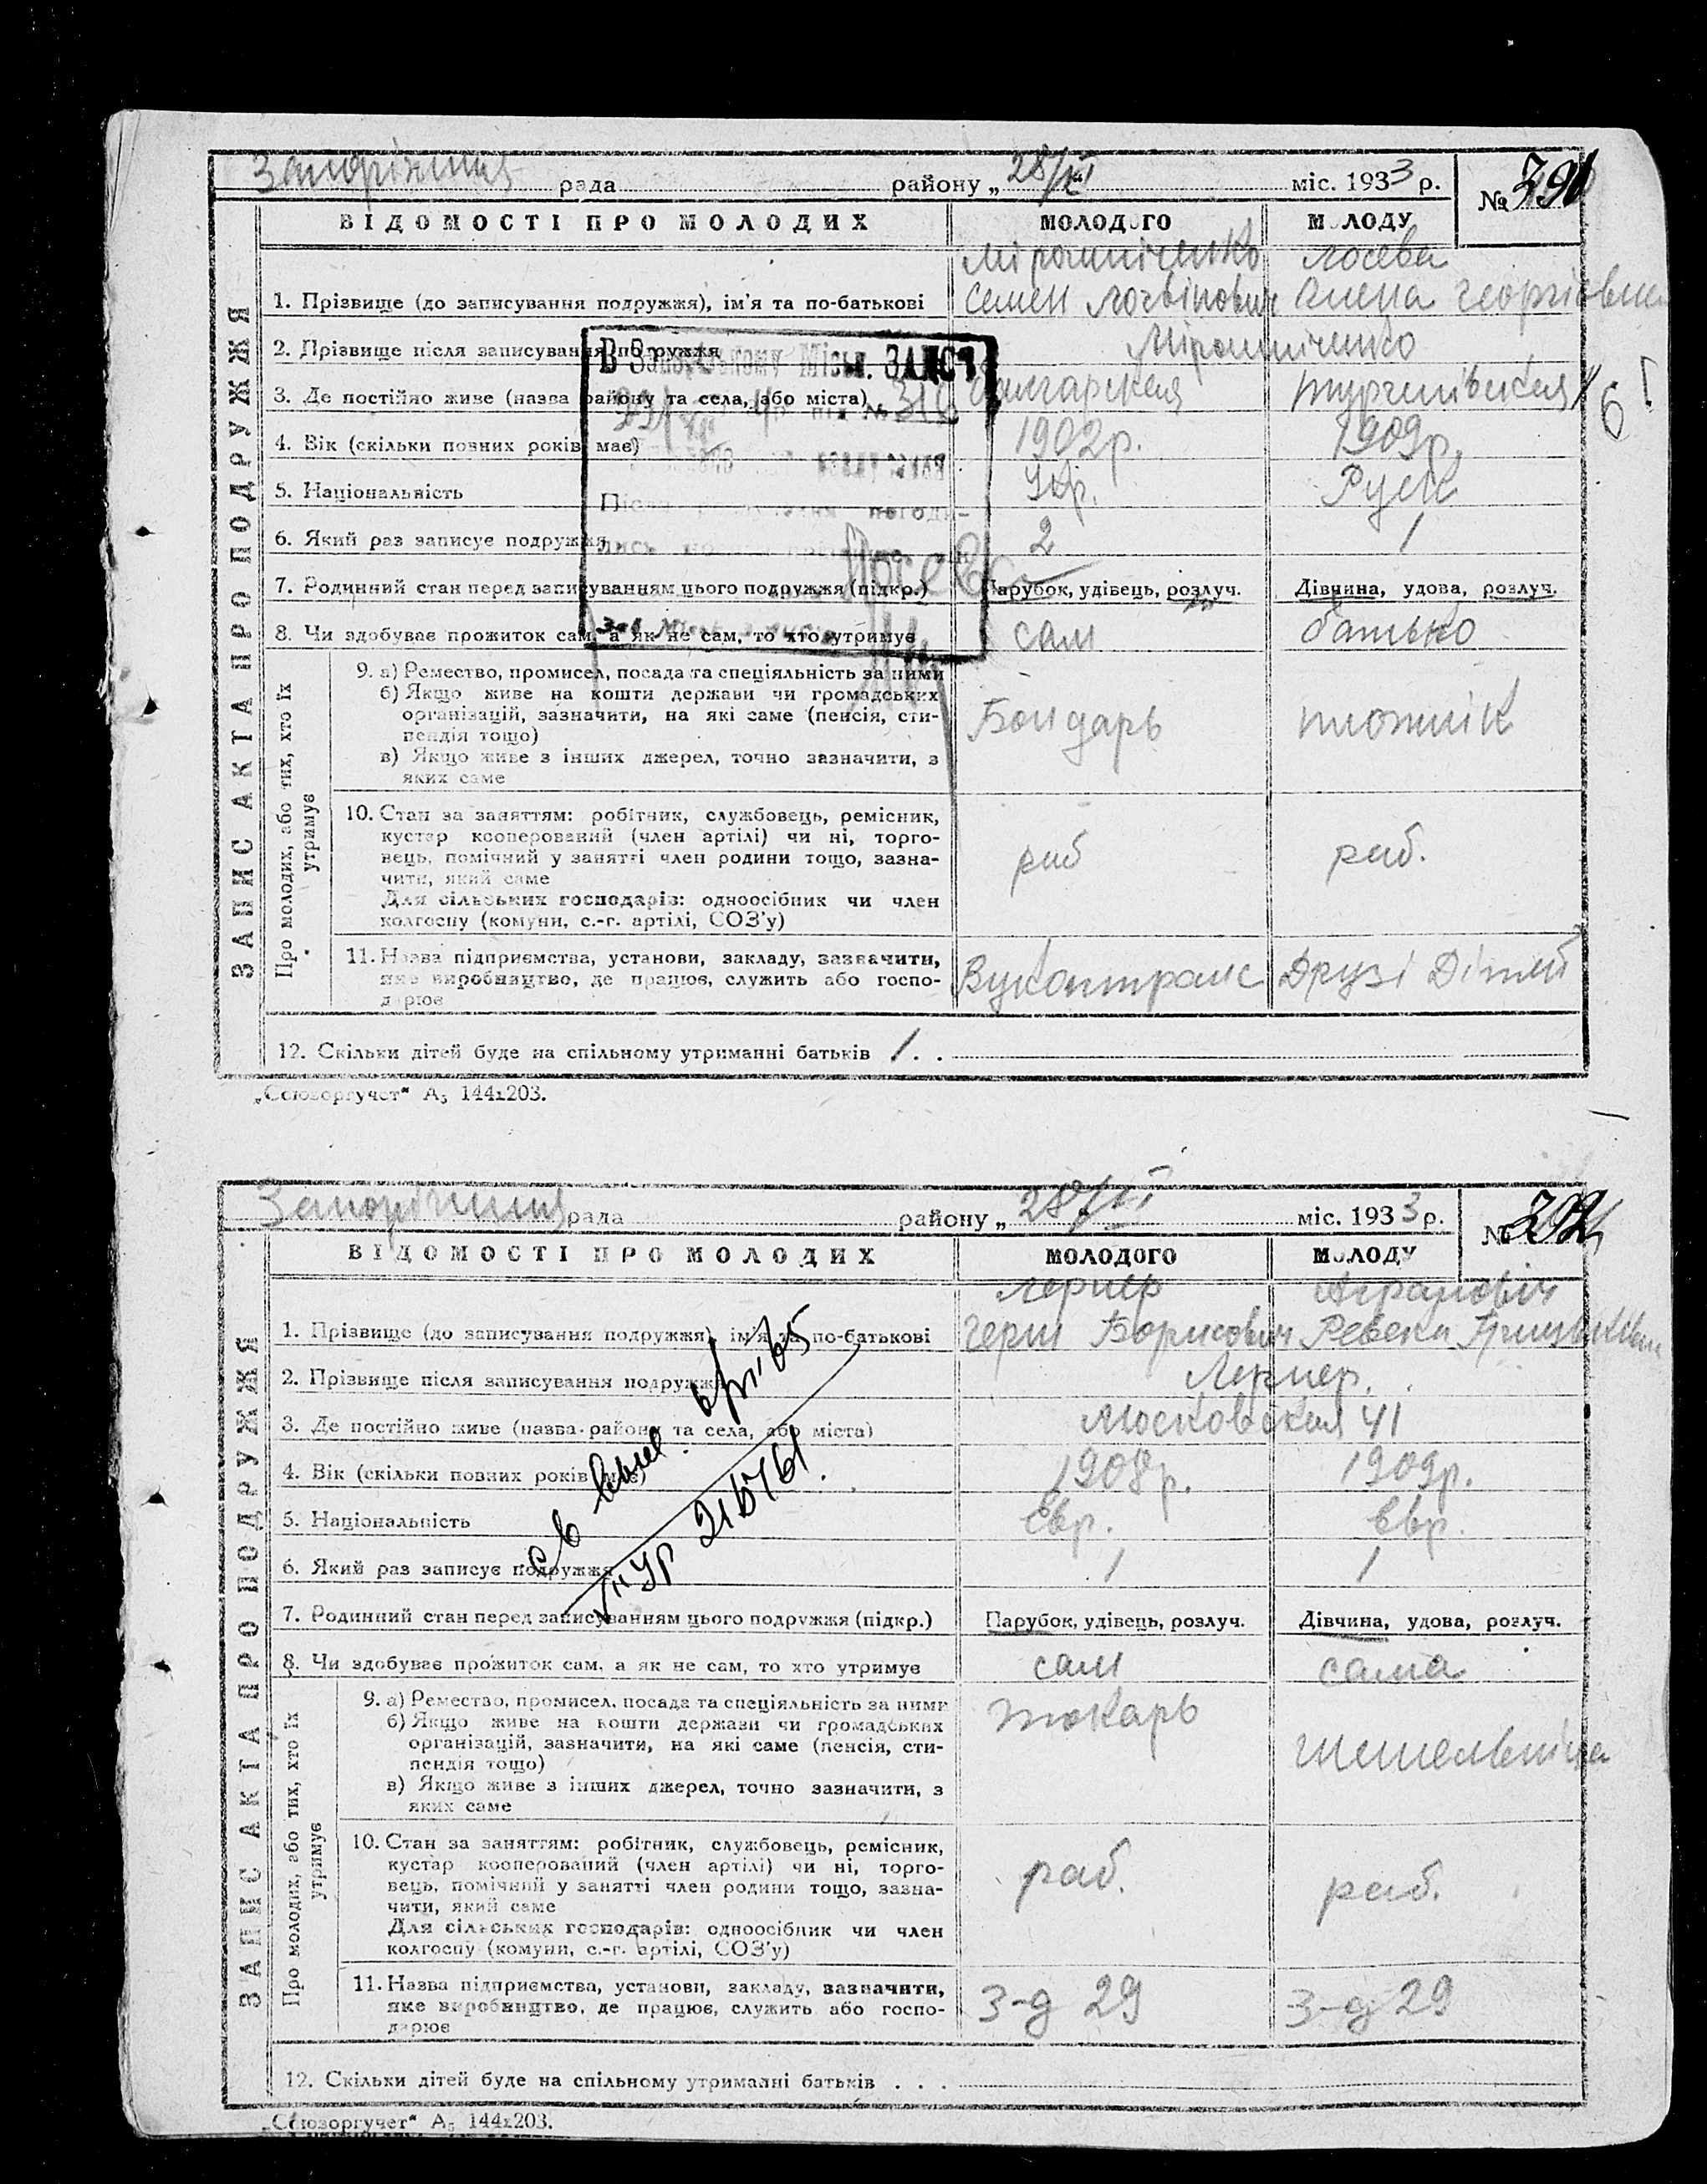 рада району „ 28/XI міс. 1933 р. №
ВІДОМОСТІ ПРО МОЛОДИХ МОЛОДОГО МОЛОДУ
ЗАПИС АКТА ПРО ПОДРУЖЖЯ
Мірошніченко Лосева
1. Прізвище (до записування подружжя), ім'я та по-батькові Семен Логвінович Олена Георгієвна
2. Прізвище після записування подружжя Мірошніченко
В Запорізькому Міськ. ЗАГСІ
3. Де постійно живе (назва району та села, або міста) Болгарская Тургенівская 61
4. Вік (скільки повних років має) 1902р. 1909р.
5. Національність Укр. Руск
6. Який раз записує подружжя 2 1
Лосева
7. Родинний стан перед записуванням цього подружжя (підкр.) Парубок, удівець, розлуч. Дівчина, удова, розлуч.
8. Чи здобуває прожиток сам, а як не сам, то хто утримує сам батько
Про молодих, або тих, хто їх утримує
9. а) Ремество, промисел, посада та спеціяльність за ними
б) Якщо живе на кошти держави чи громадських
організацій, зазначити, на які саме (пенсія, сти-
пендія тощо) Бондарь плотнік
в) Якщо живе з інших джерел, точно зазначити, з
яких саме
10. Стан за заняттям: робітник, службовець, ремісник,
кустар кооперований (член артілі) чи ні, торго-
вець, помічний у занятті член родини тощо, зазна- раб раб.
чити, який саме
Для сільських господарів: одноосібник чи член
колгоспу (комуни, с.-г. артілі, СОЗ'у)
11. Назва підприємства, установи, закладу, зазначити,
яке виробництво, де працює, служить або госпо- Друзі Дітей
дарює
12. Скільки дітей буде на спільному утриманні батьків 1. .
„Союзоргучет“ А₅ 144х203.
рада району „ 28/XI міс. 1933 р. №
ВІДОМОСТІ ПРО МОЛОДИХ МОЛОДОГО МОЛОДУ
ЗАПИС АКТА ПРО ПОДРУЖЖЯ
Лернер Агранович
1. Прізвище (до записування подружжя), ім'я та по-батькові Герш Борисович Ревека
2. Прізвище після записування подружжя Лернер.
3. Де постійно живе (назва району та села, або міста) Московская 41
4. Вік (скільки повних років має) 1908р. 1909р.
5. Національність Євр. Євр.
6. Який раз записує подружжя 1 1
7. Родинний стан перед записуванням цього подружжя (підкр.) Парубок, удівець, розлуч. Дівчина, удова, розлуч.
8. Чи здобуває прожиток сам, а як не сам, то хто утримує сам сама
Про молодих, або тих, хто їх утримує
9. а) Ремество, промисел, посада та спеціяльність за ними токарь
б) Якщо живе на кошти держави чи громадських
організацій, зазначити, на які саме (пенсія, сти-
пендія тощо)
в) Якщо живе з інших джерел, точно зазначити, з
яких саме
10. Стан за заняттям: робітник, службовець, ремісник,
кустар кооперований (член артілі) чи ні, торго-
вець, помічний у занятті член родини тощо, зазна- раб. раб.
чити, який саме
Для сільських господарів: одноосібник чи член
колгоспу (комуни, с.-г. артілі, СОЗ'у)
11. Назва підприємства, установи, закладу, зазначити,
яке виробництво, де працює, служить або госпо- З-д 29 З-д 29
дарює
12. Скільки дітей буде на спільному утриманні батьків . . .
„Союзоргучет“ А₅ 144х203.